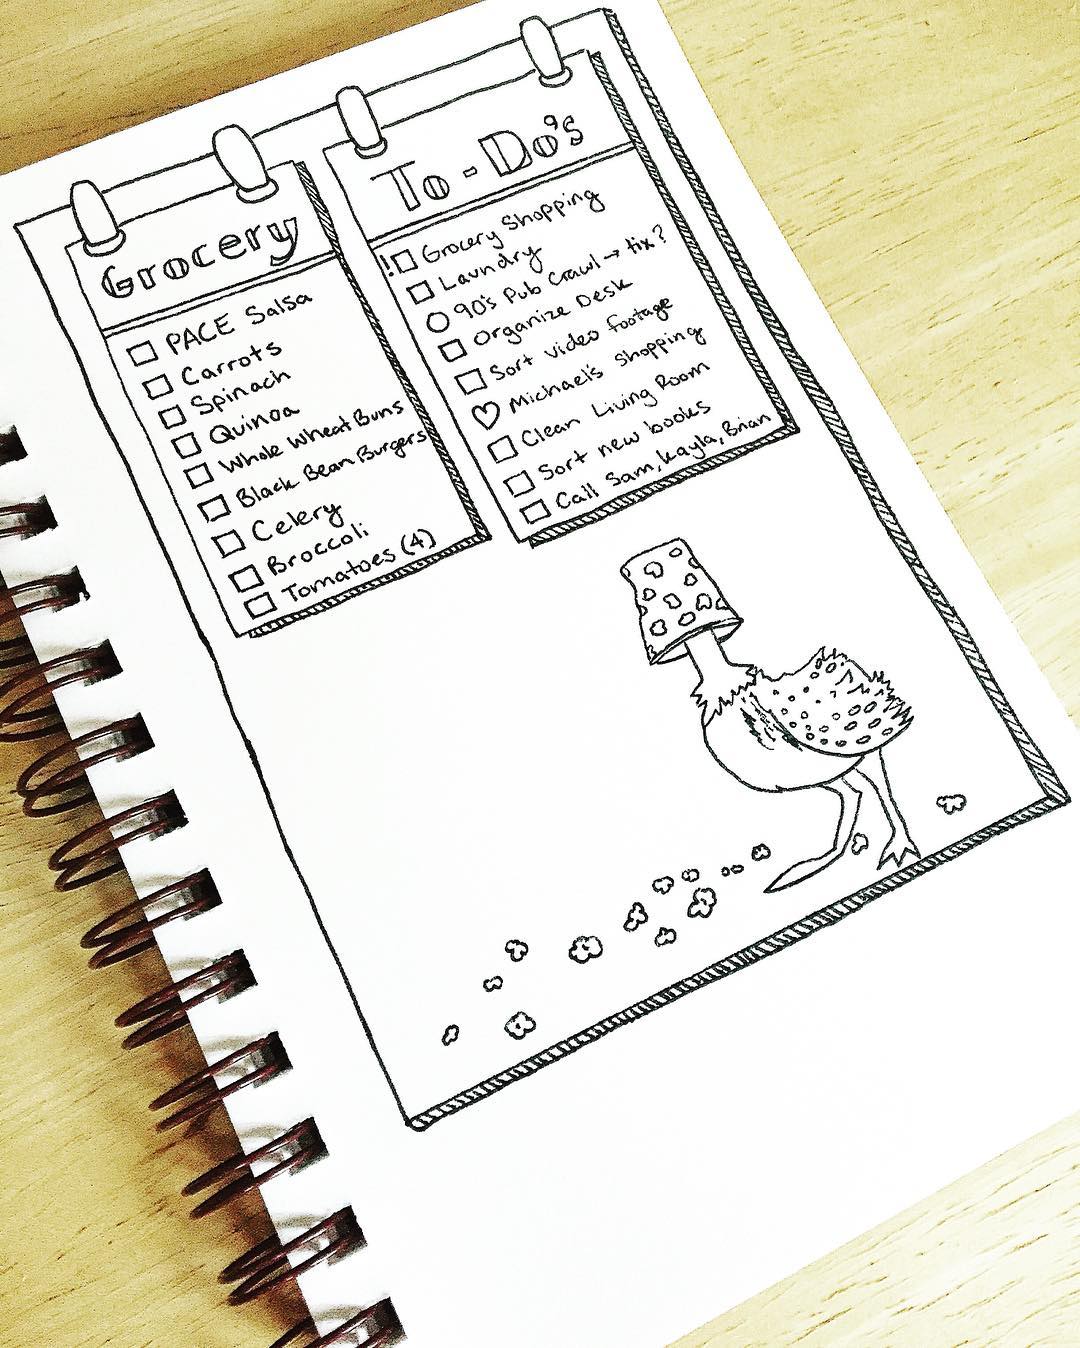 Grocery
PACE Salsa
Carrots
Spinach
Quinoa
Whole Wheat Buns
Black Bean Burgers
Celery
Broccoli
Tomatoes (4)
To-Do's
! Grocery Shopping
Laundry
90's Pub Crawl → tix?
Organize Desk
Sort video footage
Michael's Shopping
Clean Living Room
Sort new books
Call Sam, Kayla, Brian